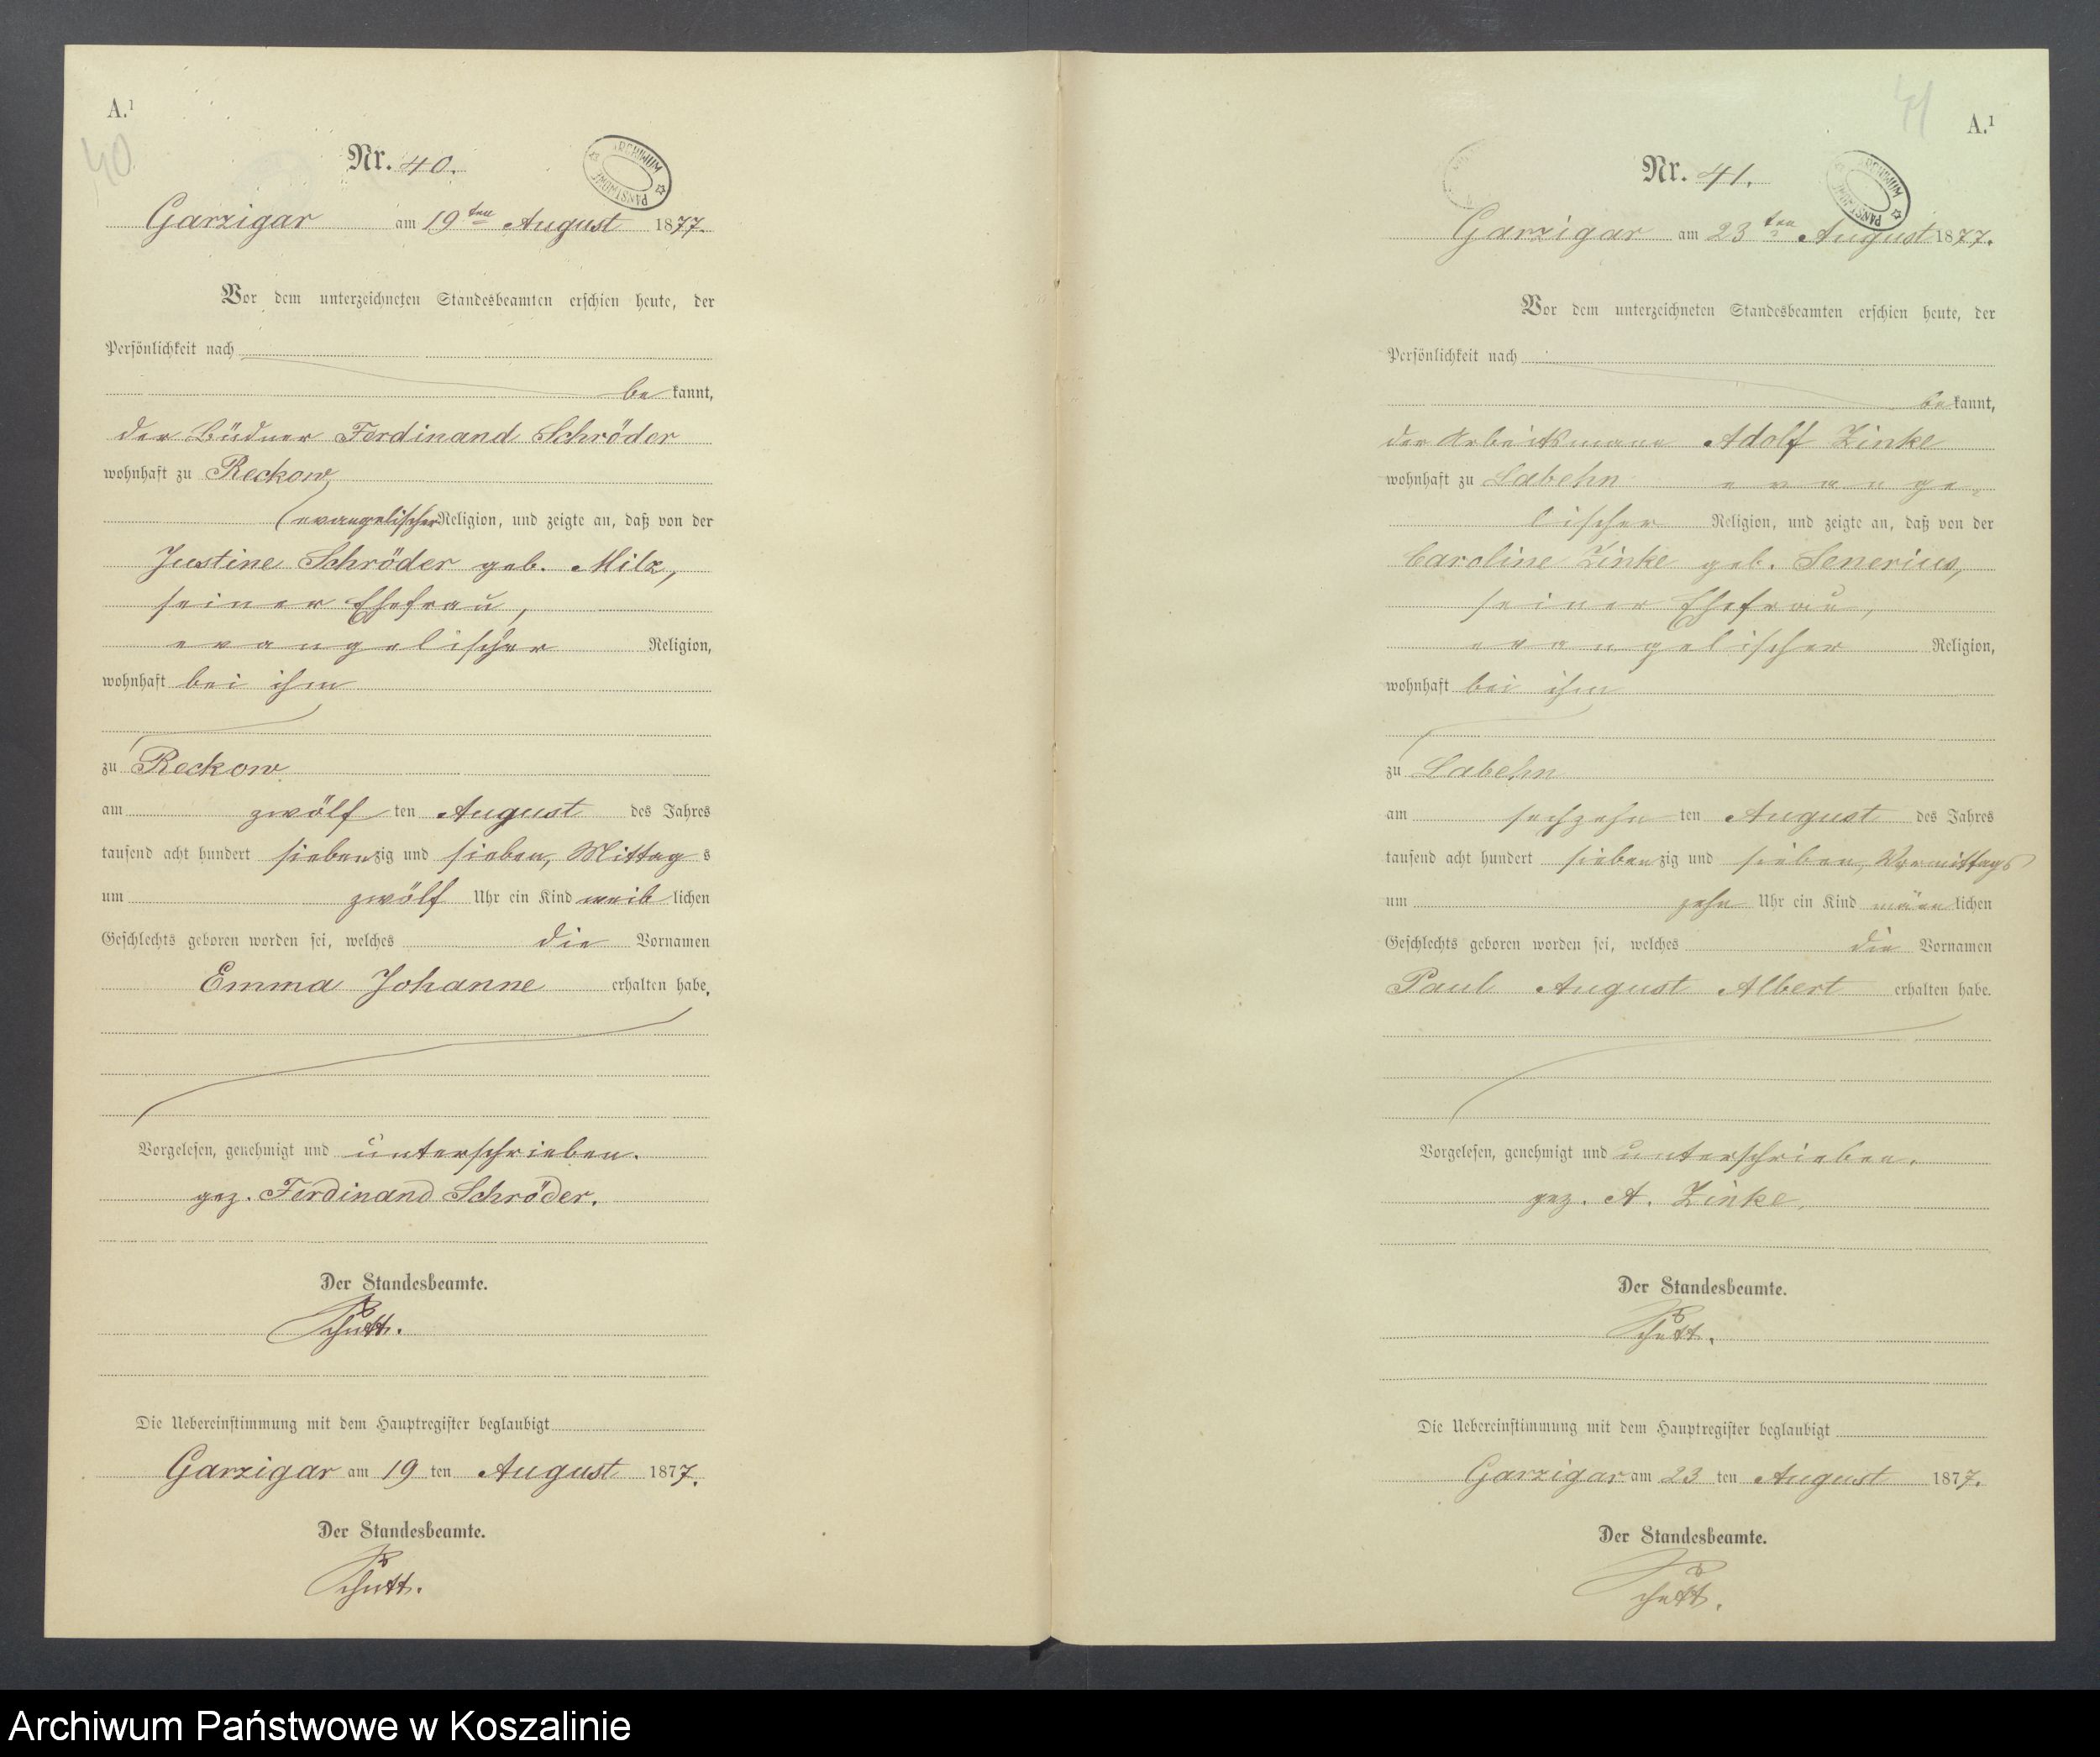 A.¹
40
Nr. 40.
ARCHIWUM PAŃSTWOWE
Garzigar am 19ten August 1877.
Vor dem unterzeichneten Standesbeamten erschien heute, der
Persönlichkeit nach
be kannt,
der Büdner Ferdinand Schröder
wohnhaft zu Reckow,
evangelischer Religion, und zeigte an, daß von der
Justine Schröder geb. Milz,
seiner Ehefrau,
evangelischer Religion,
wohnhaft bei ihm
zu Reckow
am zwölf ten August des Jahres
tausend acht hundert siebenzig und sieben, Mittag s
um zwölf Uhr ein Kind weib lichen
Geschlechts geboren worden sei, welches die Vornamen
Emma Johanne erhalten habe.
Vorgelesen, genehmigt und unterschrieben.
gez. Ferdinand Schröder.
Der Standesbeamte.
Schütt.
Die Uebereinstimmung mit dem Hauptregister beglaubigt
Garzigar am 19 ten August 1877.
Der Standesbeamte.
Schütt.
41
A.¹
Nr. 41.
ARCHIWUM PAŃSTWOWE
Garzigar am 23ten August 1877.
Vor dem unterzeichneten Standesbeamten erschien heute, der
Persönlichkeit nach
be kannt,
der Arbeitsmann Adolf Zinke
wohnhaft zu Labehn evange-
lischer Religion, und zeigte an, daß von der
Caroline Zinke geb. Senerius,
seiner Ehefrau,
evangelischer Religion,
wohnhaft bei ihm
zu Labehn
am sechzehn ten August des Jahres
tausend acht hundert siebenzig und sieben, Vormittags
um zehn Uhr ein Kind männ lichen
Geschlechts geboren worden sei, welches die Vornamen
Paul August Albert erhalten habe.
Vorgelesen, genehmigt und unterschrieben.
gez. A. Zinke.
Der Standesbeamte.
Schütt.
Die Uebereinstimmung mit dem Hauptregister beglaubigt
Garzigar am 23 ten August 1877.
Der Standesbeamte.
Schütt.
Archiwum Państwowe w Koszalinie